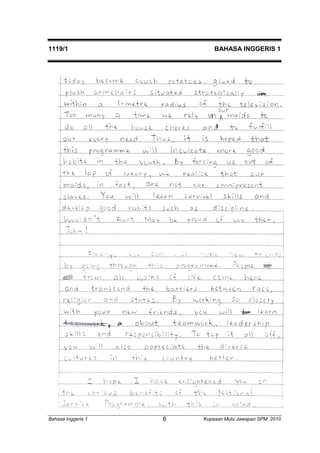 1119/1 BAHASA INGGERIS 1
today become couch potatoes glued to
plush armchairs situated strategically
within a 1-metre radius of the television.
Too many a time we rely on our maids to
do all the house chores and to fulfill
our every need. Thus, it is hoped that
this programme will inculcate more good
habits in the youth. By forcing us out of
the lap of luxury, we realise that our
maids, in fact, are not our omnipresent
slaves. You will learn survival skills and
develop good habits such as discipline.
Wouldn't Aunt May be proud of you then,
John!
Finally, you can also make new friends
by going through this programme. People
from all walks of life come here
and transcend the barriers between race,
religion and states. By working so closely
with your new friends, you will learn
a about teamwork, leadership
skills and responsibility. To top it all off,
you will also appreciate the diverse
cultures in this country better.
I hope I have enlightened you on
the various benefits of the National
Service Programme. With this in mind,
Bahasa Inggeris 1 6 Kupasan Mutu Jawapan SPM 2010